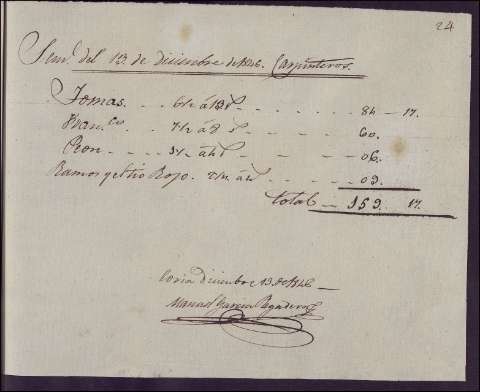 24
Sem.ª del 13 de diciembre de 1846. Carpinteros.
Tomas. . . 6½ á 13 r.s . . . . . . 84 – 17.
Fran.co . . 7½ á 8 r.s – – – 60.
Peon. . . 1½ á 4 r.s – – – 06.
Ramos y el tio Rojo. á 4 r.s . . . 09.
total . . 159. 17.
Coria diciembre 13 de 1846
Manuel Garcia